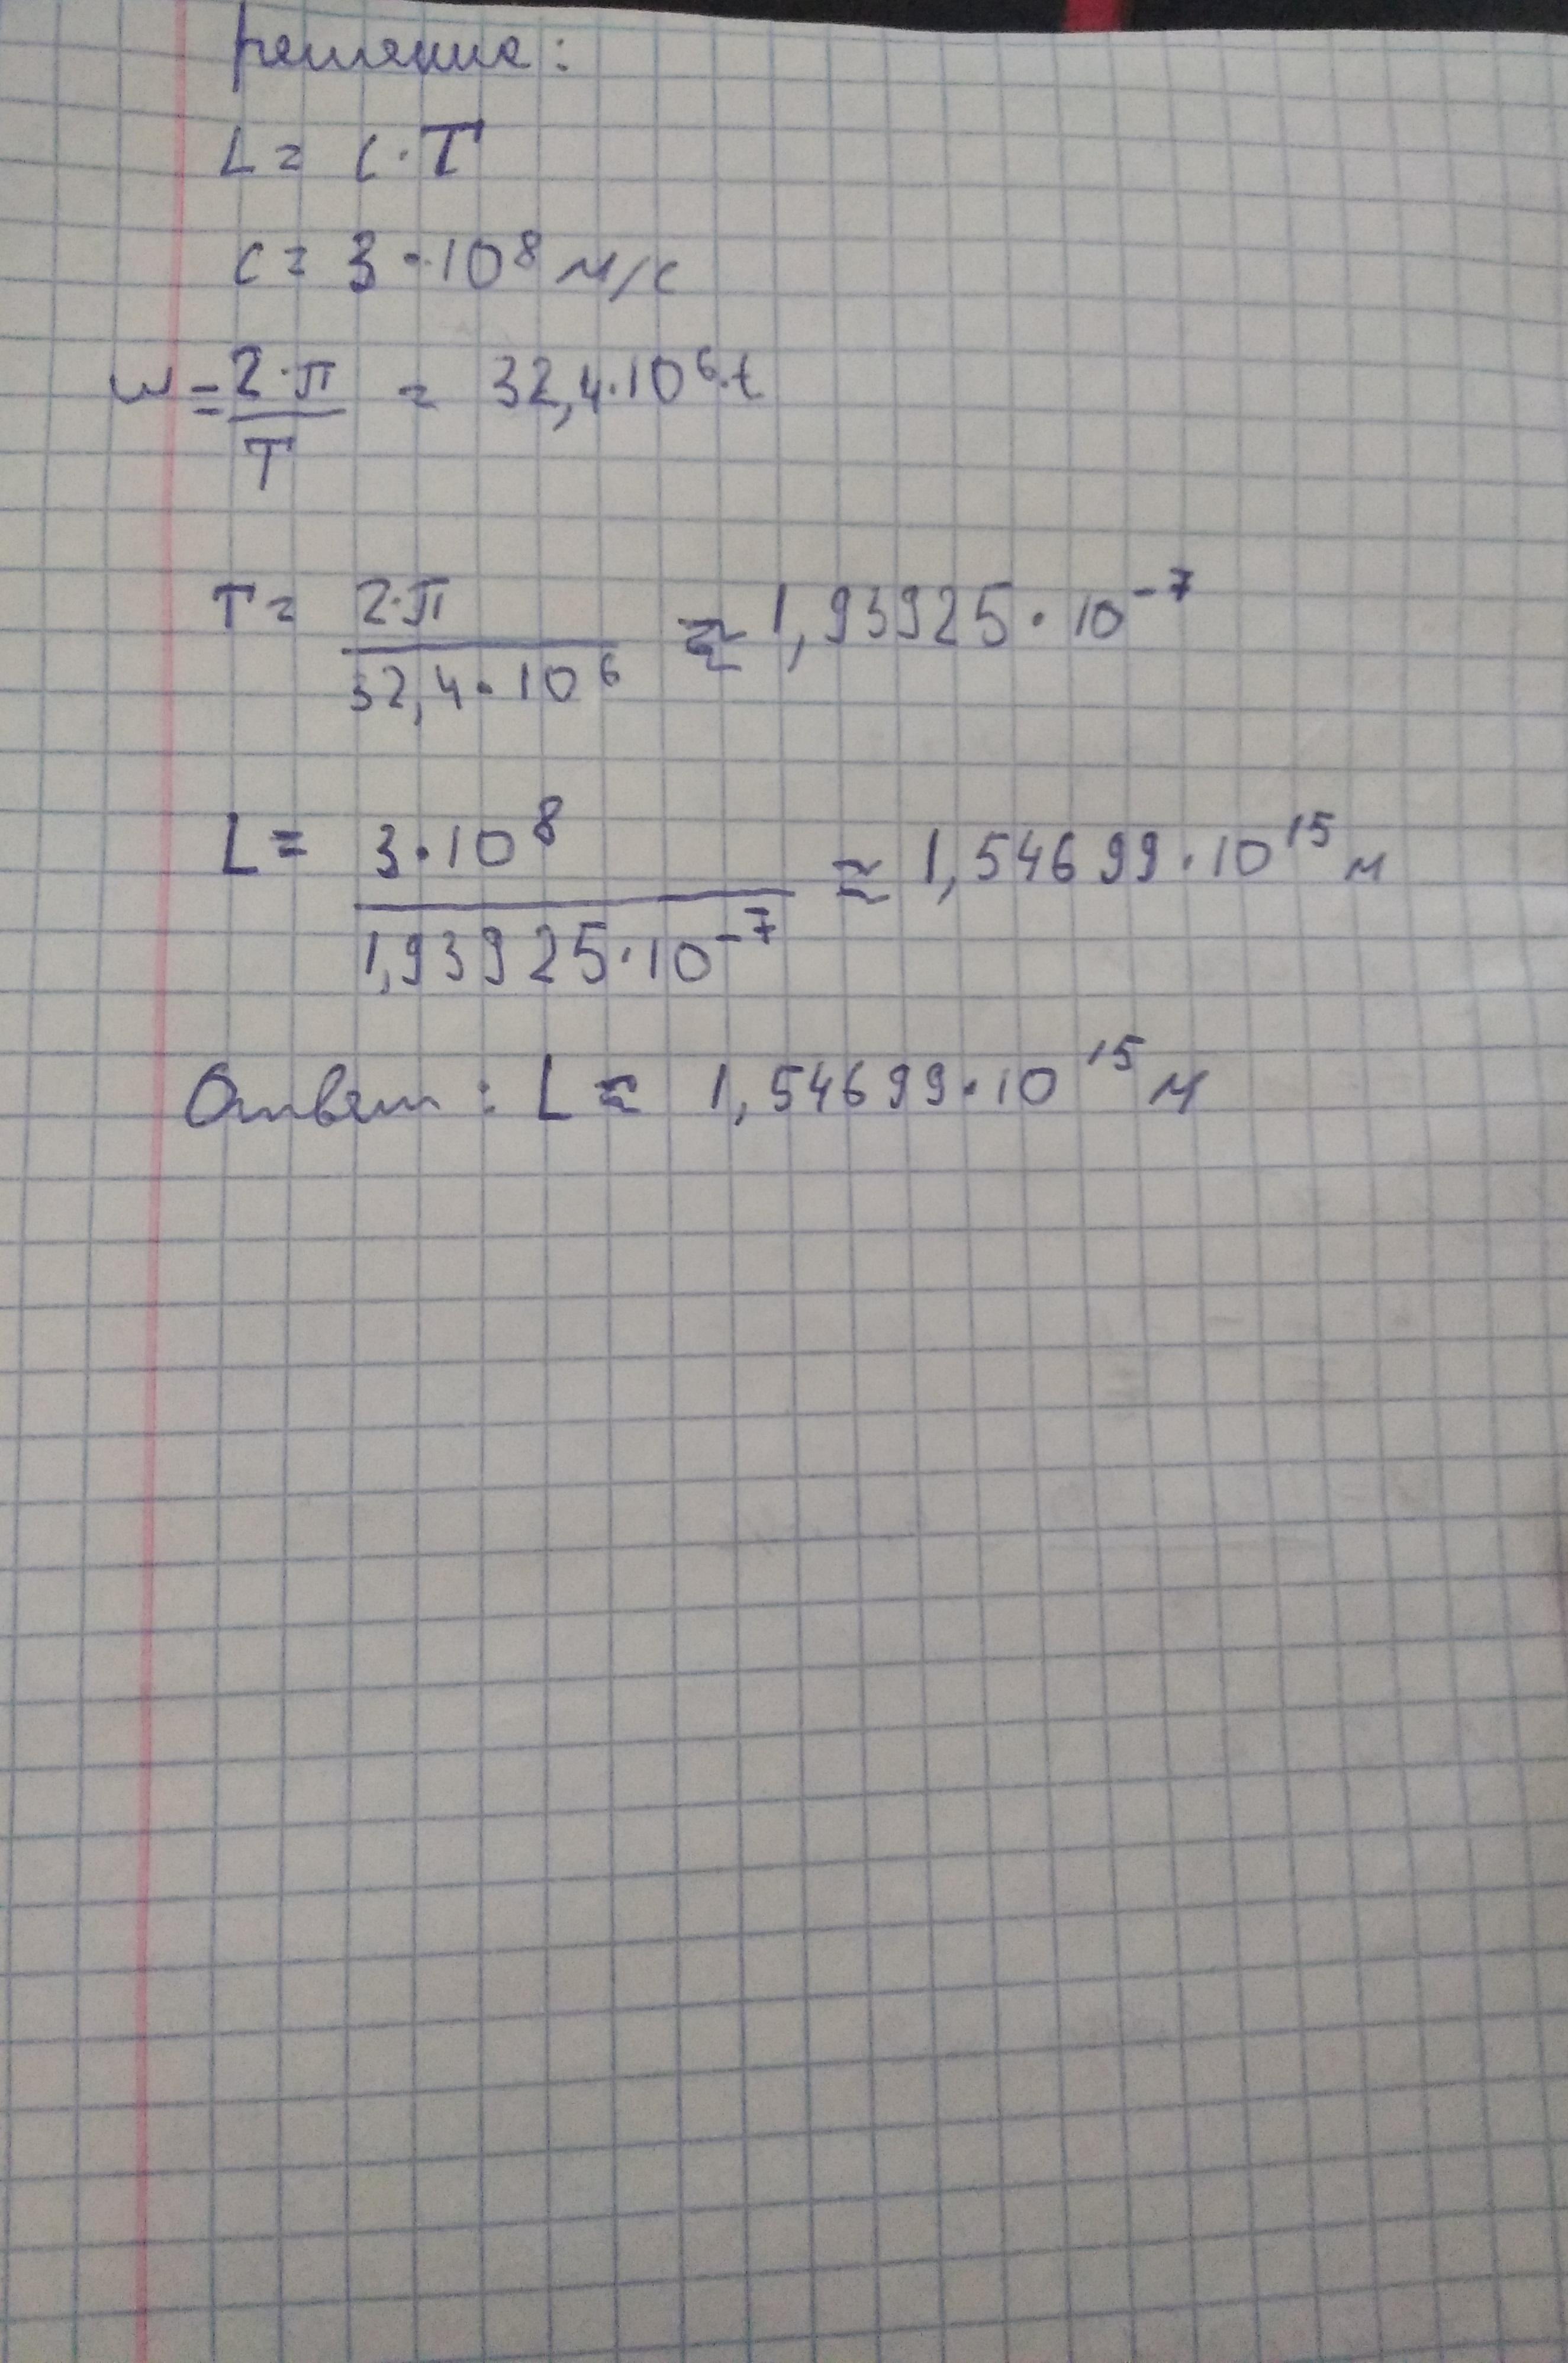 решение:
L = c · T
c = 3 · 10⁸ м/с
ω = 2·π/T = 32,4·10⁶·t
T = 2·π/32,4·10⁶ ≈ 1,93925·10⁻⁷
L = 3·10⁸/1,93925·10⁻⁷ ≈ 1,54699·10¹⁵ м
Ответ: L ≈ 1,54699·10¹⁵ м